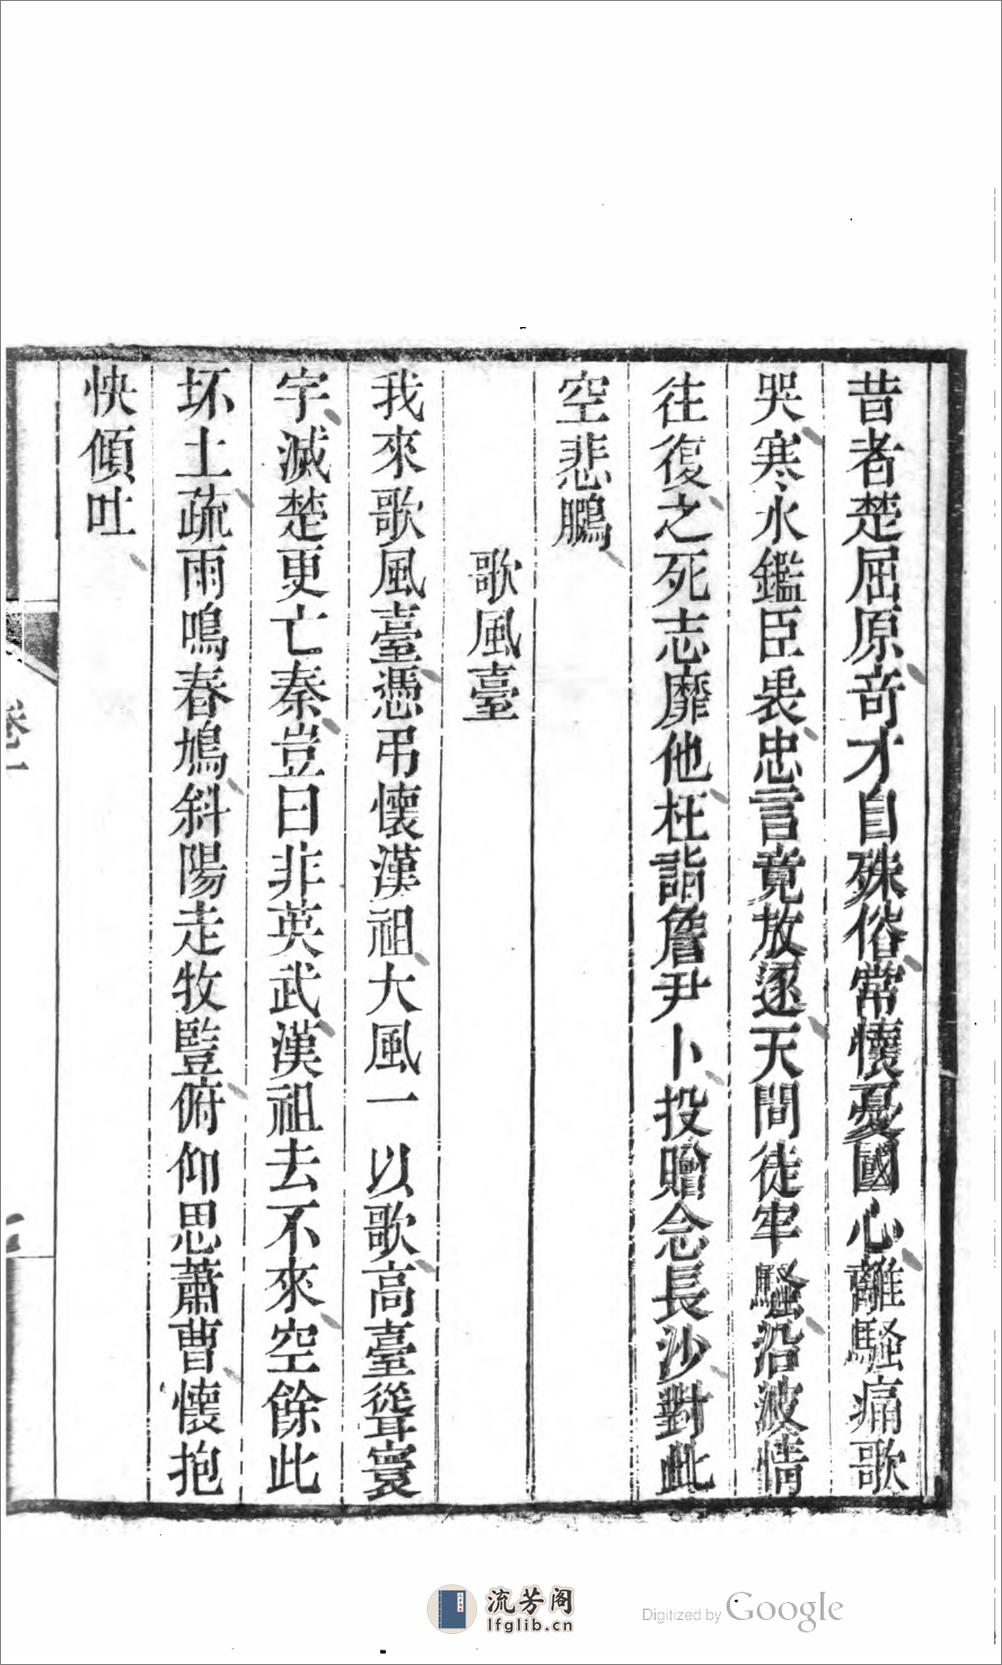 昔者楚屈原奇才自殊俗常懷憂國心離騷痛歌
哭寒氷鑑臣衷忠言竟放逐天問徒牢騷沿波情
往復之死志靡他枉詣詹尹卜投贈念長沙對此
空悲鵩
歌風臺
我來歌風臺憑弔懷漢祖大風一以歌高臺聳寰
宇滅楚更亡秦豈曰非英武漢祖去不來空餘此
坏土疏雨鳴春鳩斜陽走牧豎俯仰思蕭曹懷抱
快傾吐
卷一
流芳阁
lfglib.cn
Digitized by Google